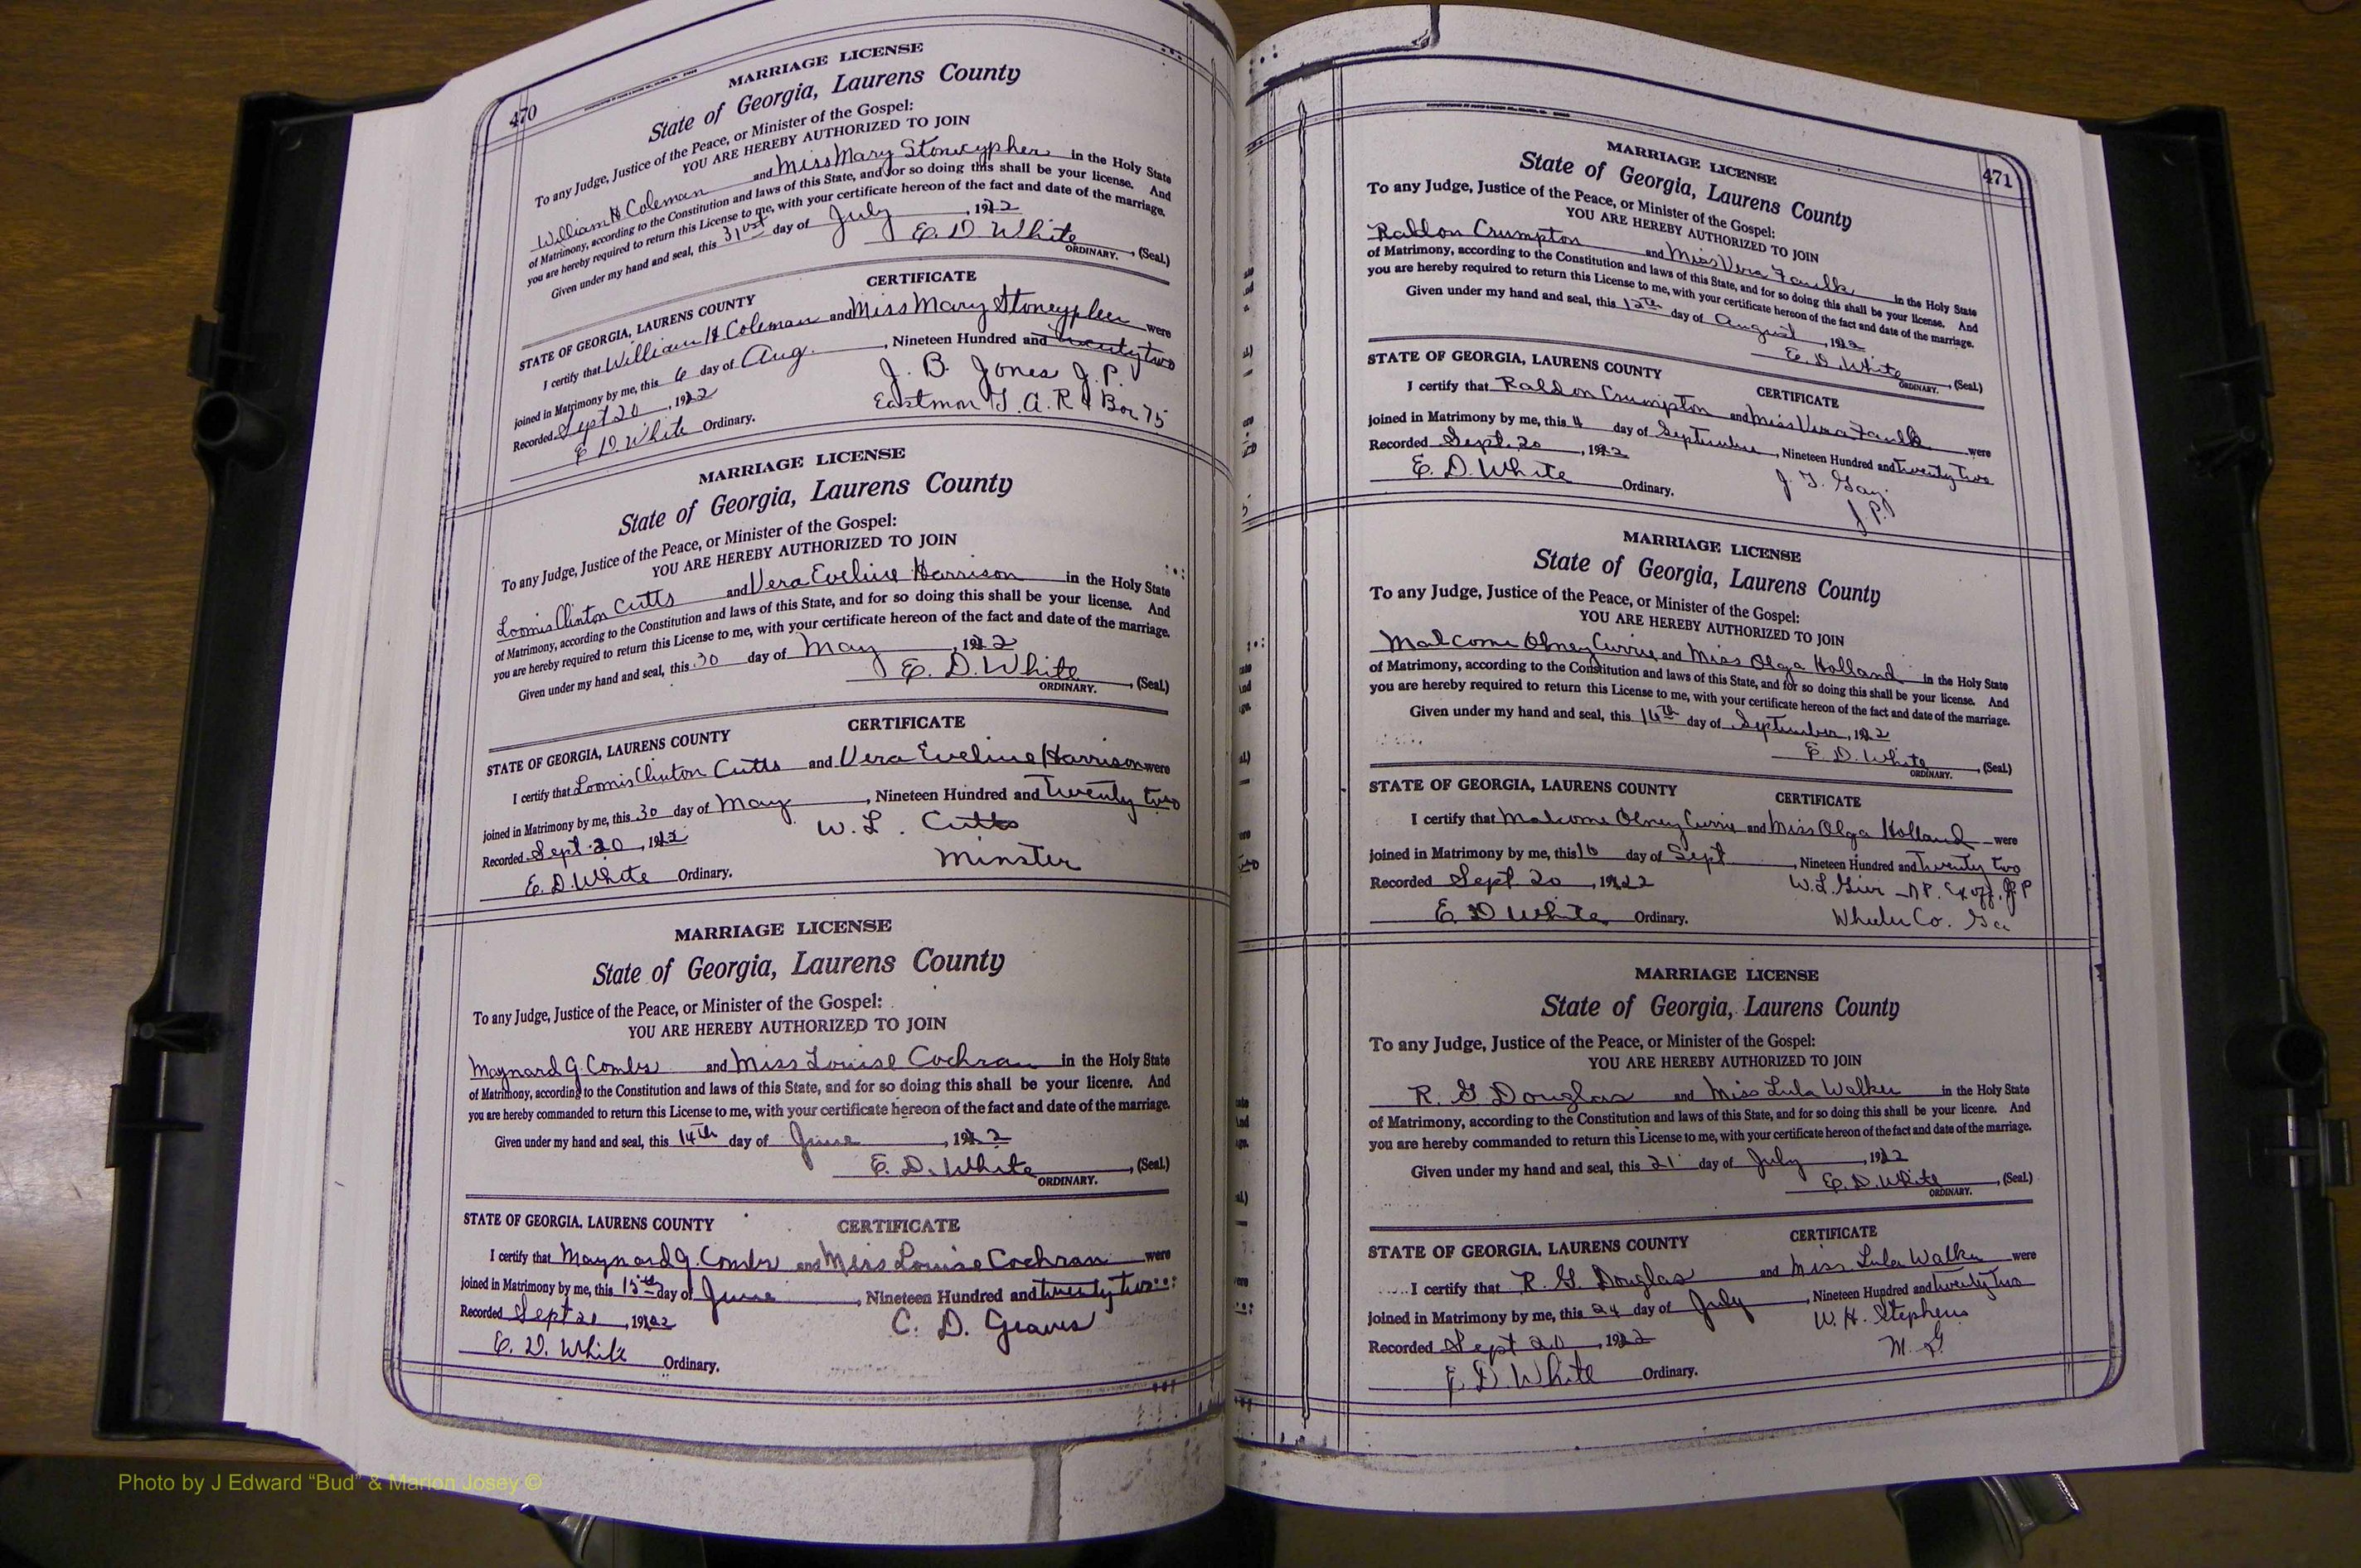 470
MARRIAGE LICENSE
State of Georgia, Laurens County
To any Judge, Justice of the Peace, or Minister of the Gospel:
YOU ARE HEREBY AUTHORIZED TO JOIN
William H Coleman and Miss Mary Stonecypher in the Holy State
of Matrimony, according to the Constitution and laws of this State, and for so doing this shall be your license. And
you are hereby required to return this License to me, with your certificate hereon of the fact and date of the marriage.
Given under my hand and seal, this 31st day of July, 1922
E. D. White, (Seal.)
ORDINARY.
CERTIFICATE
STATE OF GEORGIA, LAURENS COUNTY
I certify that William H Coleman and Miss Mary Stoneypher were
joined in Matrimony by me, this 6 day of Aug., Nineteen Hundred and twenty two
Recorded Sept 20, 1922 J. B. Jones J.P.
E D. White Ordinary. Eastman Box 75
MARRIAGE LICENSE
State of Georgia, Laurens County
To any Judge, Justice of the Peace, or Minister of the Gospel:
YOU ARE HEREBY AUTHORIZED TO JOIN
Loomis Clinton Cutts and Vera Eveline Harrison in the Holy State
of Matrimony, according to the Constitution and laws of this State, and for so doing this shall be your license. And
you are hereby required to return this License to me, with your certificate hereon of the fact and date of the marriage.
Given under my hand and seal, this 30 day of May, 1922
E. D. White, (Seal.)
ORDINARY.
CERTIFICATE
STATE OF GEORGIA, LAURENS COUNTY
I certify that Loomis Clinton Cutts and Vera Eveline Harrison were
joined in Matrimony by me, this 30 day of May, Nineteen Hundred and Twenty two
Recorded Sept. 20, 1922 W. L. Cutts
E. D. White Ordinary. Minster
MARRIAGE LICENSE
State of Georgia, Laurens County
To any Judge, Justice of the Peace, or Minister of the Gospel:
YOU ARE HEREBY AUTHORIZED TO JOIN
Maynard G. Combs and Miss Louise Cochran in the Holy State
of Matrimony, according to the Constitution and laws of this State, and for so doing this shall be your license. And
you are hereby commanded to return this License to me, with your certificate hereon of the fact and date of the marriage.
Given under my hand and seal, this 14th day of June, 1922
E. D. White, (Seal.)
ORDINARY.
STATE OF GEORGIA, LAURENS COUNTY CERTIFICATE
I certify that Maynard G. Combs and Miss Louise Cochran were
joined in Matrimony by me, this 15th day of June, Nineteen Hundred and twenty two
Recorded Sept 20, 1922 C. D. Graves
E. D. White Ordinary.
471
MARRIAGE LICENSE
State of Georgia, Laurens County
To any Judge, Justice of the Peace, or Minister of the Gospel:
YOU ARE HEREBY AUTHORIZED TO JOIN
Raldon Crumpton and Miss Vera Faulk in the Holy State
of Matrimony, according to the Constitution and laws of this State, and for so doing this shall be your license. And
you are hereby required to return this License to me, with your certificate hereon of the fact and date of the marriage.
Given under my hand and seal, this 12th day of August, 1922
E. D. White, (Seal.)
ORDINARY.
STATE OF GEORGIA, LAURENS COUNTY CERTIFICATE
I certify that Raldon Crumpton and Miss Vera Faulk were
joined in Matrimony by me, this 4 day of September, Nineteen Hundred and twenty two
Recorded Sept. 20, 1922 J. T. Gay
E. D. White Ordinary. J.P.
MARRIAGE LICENSE
State of Georgia, Laurens County
To any Judge, Justice of the Peace, or Minister of the Gospel:
YOU ARE HEREBY AUTHORIZED TO JOIN
Malcome Olney Currie and Miss Olga Holland in the Holy State
of Matrimony, according to the Constitution and laws of this State, and for so doing this shall be your license. And
you are hereby required to return this License to me, with your certificate hereon of the fact and date of the marriage.
Given under my hand and seal, this 16th day of September, 1922
E. D. White, (Seal.)
ORDINARY.
STATE OF GEORGIA, LAURENS COUNTY CERTIFICATE
I certify that Malcome Olney Currie and Miss Olga Holland were
joined in Matrimony by me, this 16 day of Sept, Nineteen Hundred and Twenty two
Recorded Sept. 20, 1922 W. L. N.P. Ex off. J P
E D White Ordinary. Wheeler Co. Ga
MARRIAGE LICENSE
State of Georgia, Laurens County
To any Judge, Justice of the Peace, or Minister of the Gospel:
YOU ARE HEREBY AUTHORIZED TO JOIN
R. G. Douglas and Miss Lula Walker in the Holy State
of Matrimony, according to the Constitution and laws of this State, and for so doing this shall be your license. And
you are hereby commanded to return this License to me, with your certificate hereon of the fact and date of the marriage.
Given under my hand and seal, this 21 day of July, 1922
E. D. White, (Seal.)
ORDINARY.
STATE OF GEORGIA, LAURENS COUNTY CERTIFICATE
I certify that R. G. Douglas and Miss Lula Walker were
joined in Matrimony by me, this 24 day of July, Nineteen Hundred and twenty two
Recorded Sept 20, 1922 W. H. Stephens
E D. White Ordinary. M. G
Photo by J Edward “Bud” & Marion Josey ©